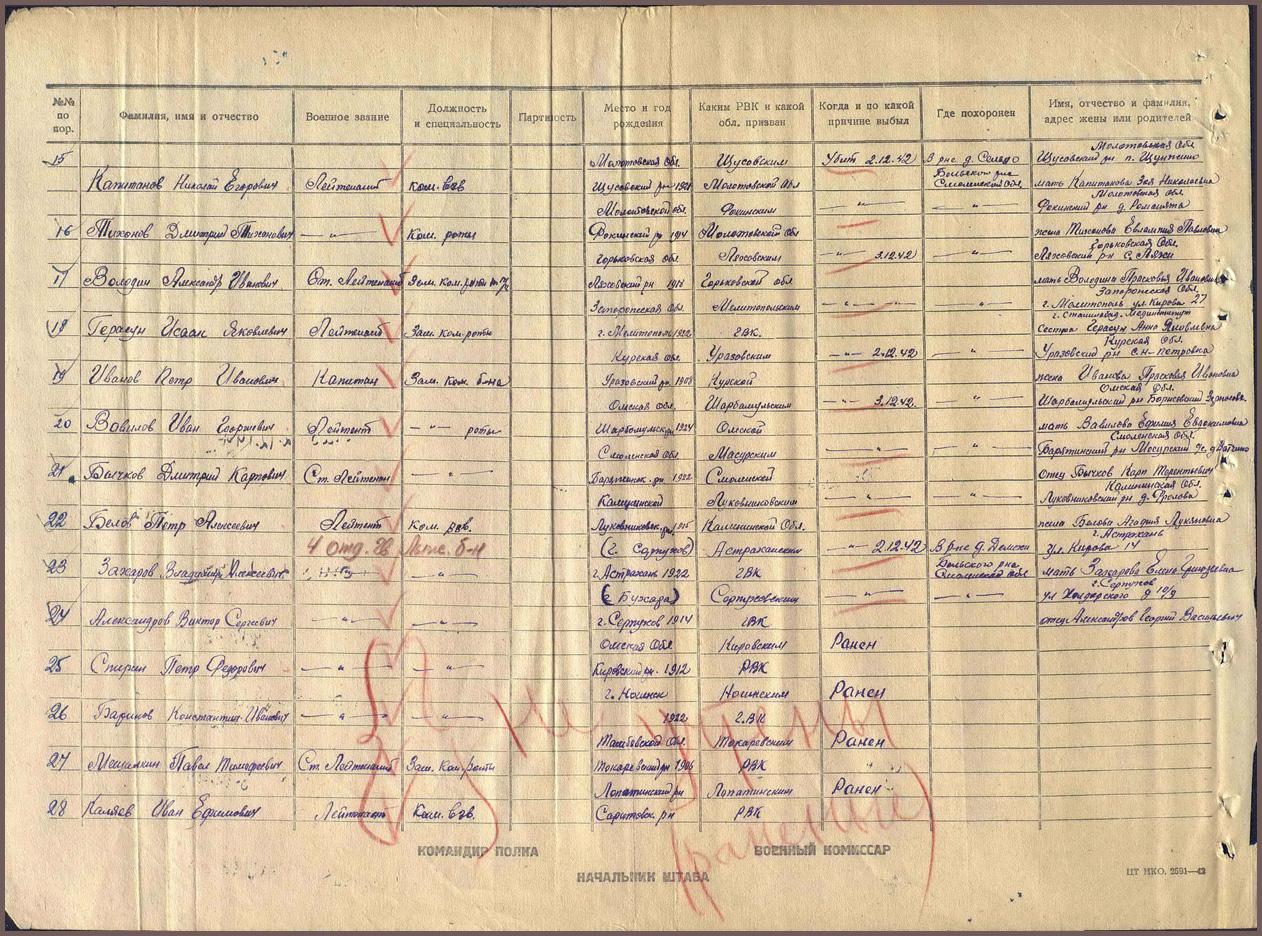 №№ по пор.
Фамилия, имя и отчество
Военное звание
Должность и специальность
Партийность
Место и год рождения
Каким РВК и какой обл. призван
Когда и по какой причине выбыл
Где похоронен
Имя, отчество и фамилия, адрес жены или родителей
15 Молотовская обл. Щусовским Убит 2.12.42 В р-не д. Молотовская обл.
Капитанов Николай Егорович Лейтенант Ком. взв Молотовской обл Бельского р-на Смоленской обл. мать Капитанова Зоя Николаевна
Молотовской обл Фокинским — " — Молотовская обл. Фокинский р-н д.
16 Тихонов Дмитрий Тиханович — " — Ком. роты Фокинский р-н 1914 Молотовской обл жена Тихонова Евлампия Павловна
Горьковская обл. Лясовским — " — 3.12.42 — " — Горьковская обл. Лясовский р-н с. Ляхи
17 Володин Александр Иванович Ст. Лейтенант Зам. ком. роты Горьковской обл мать Володина Прасковья Ивановна
Запорожская обл. Мелитопольским — " — " — — " — Запорожская обл. г. Мелитополь ул. Кирова 27
18 Герасун Исаак Яковлевич Лейтенант Зам. ком. роты г. Мелитополь 1922 ГВК. сестра Герасун Анна Яковлевна
Курская обл. Уразовским — " — 2.12.42 — " — Курская обл. Уразовский р-н с. Н-Петровка
19 Иванов Петр Иванович Капитан Зам. ком. б-на Уразовский р-н 1908 Курской жена Иванова Прасковья Ивановна
Омская обл. Шарбакульским — " — 3.12.42. — " — Омская обл. Шарбакульский р-н Борисовский
20 Вавилов Иван Георгиевич Лейтенант — " — роты 1924 Омской мать Вавилова Ефимия Евдокимовна
Смоленская обл. Масурским — " — " — — " — Смоленская обл.
21 Бычков Дмитрий Карпович Ст. Лейтенант — " — 1922 Смоленской отец Бычков Карп Терентьевич
Калининской Луковниковским — " — " — — " — Калининская обл. Луковниковский р-н д. Фролова
22 Белов Петр Алексеевич Лейтенант Ком. взв. Калининской обл. жена Белова Агафия Лукьяновна
4 отд. б-н (г. Серпухов) Астраханским — " — 2.12.42 В р-не д. Демехи г. Астрахань ул. Кирова 14
23 Захаров Владимир Алексеевич — " — г. Астрахань 1922 ГВК Бельского р-на Смоленской обл мать Захарова Елена
(г Бухара) Серпуховским — " — " — — " — г. Серпухов
24 Александров Виктор Сергеевич — " — — " — г. Серпухов 1914 ГВК отец Александров Георгий Васильевич
Омская обл Кировским Ранен
25 Спирин Петр Федорович — " — — " — Кировский р-н. 1912 РВК
г. Ногинск Ногинским Ранен
26 Баринов Константин Иванович — " — — " — 1922 Г.ВК
Тамбовской обл. Токаревским Ранен
27 Мешалкин Павел Тимофеевич Ст. Лейтенант Зам. ком роты Токаревский р-н 1906 РВК
Лопатинский р-н Лопатинским Ранен
28 Каляев Иван Ефимович Лейтенант Ком. взв. РВК
Не учтены
(ранение)
КОМАНДИР ПОЛКА
ВОЕННЫЙ КОМИССАР
НАЧАЛЬНИК ШТАБА
ЦТ НКО. 2591—42